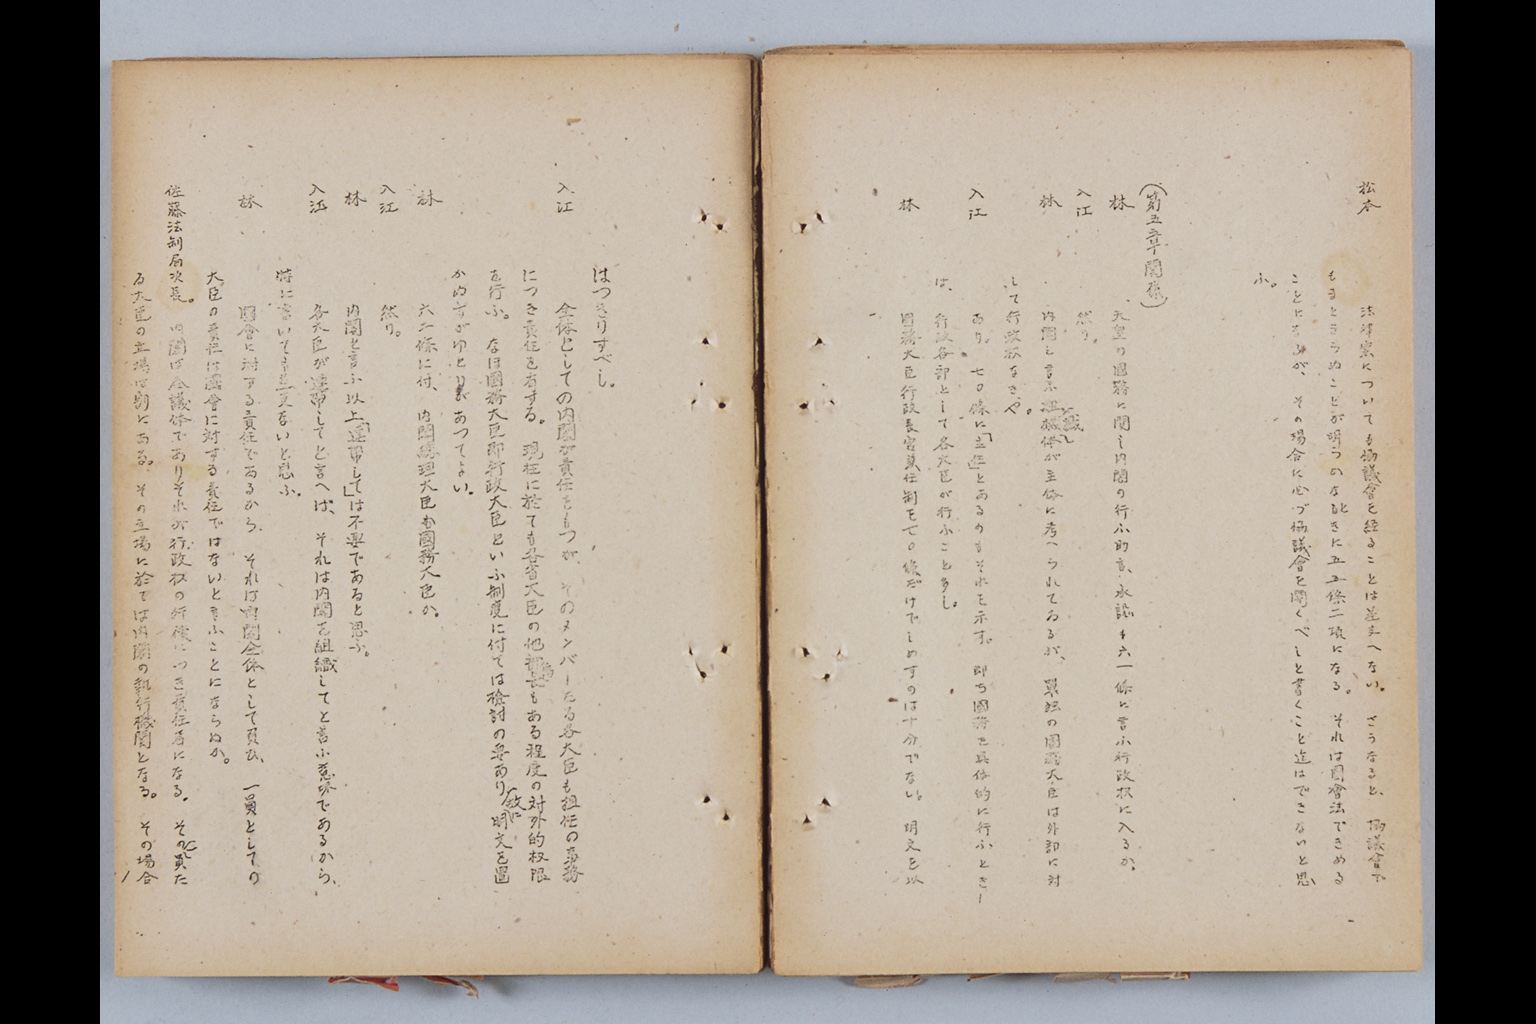 松本　法律案についても協議會を経ることは差支へない。さうなると、協議會で
もまとまらぬことが明つかなときに五五條二項になる。それは國會法できめる
ことになるが、その場合に必づ協議會を開くべしと書くこと迄はできないと思
ふ。
（第五章関係）
林　天皇の國務に関し内閣の行ふ助言、承認も六一條に言ふ行政权に入るか。
入江　然り。
林　内閣と言ふ組織体が主体に考へられてゐるが、單独の國務大臣は外部に対
して行政权なきや。
入江　あり。七〇條に「主任」とあるのもそれを示す。即ち國務を具体的に行ふとき
は、行政各部として各大臣が行ふこと多し。
林　國務大臣行政長官兼任制を七〇條だけでしめすのは十分でない。明文を以
はつきりすべし。
入江　全体としての内閣が責任をもつが、そのメンバーたる各大臣も担任の事務
につき責任を有する。現在に於ても各省大臣の他部長もある程度の対外的权限
を行ふ。なほ國務大臣即行政大臣といふ制度に付ては檢討の要あり、故に明文を置
かぬ方がゆとりがあつてよい。
林　六二條に付、内閣總理大臣も國務大臣か。
入江　然り。
林　内閣と言ふ以上「連帶して」は不要であると思ふ。
入江　各大臣が連帶してと言へば、それは内閣を組織してと言ふ意味であるから、
特に書いても差支ないと思ふ。
林　國會に対する責任であるから、それは内閣全体として負ひ、一員としての
大臣の責任は國會に対する責任ではないと言ふことにならぬか。
佐藤法制局次長。内閣は合議体でありそれが行政权の行使につき責任者になる。その一員た
る大臣の立場は別にある。その立場に於ては内閣の執行機関となる。その場合